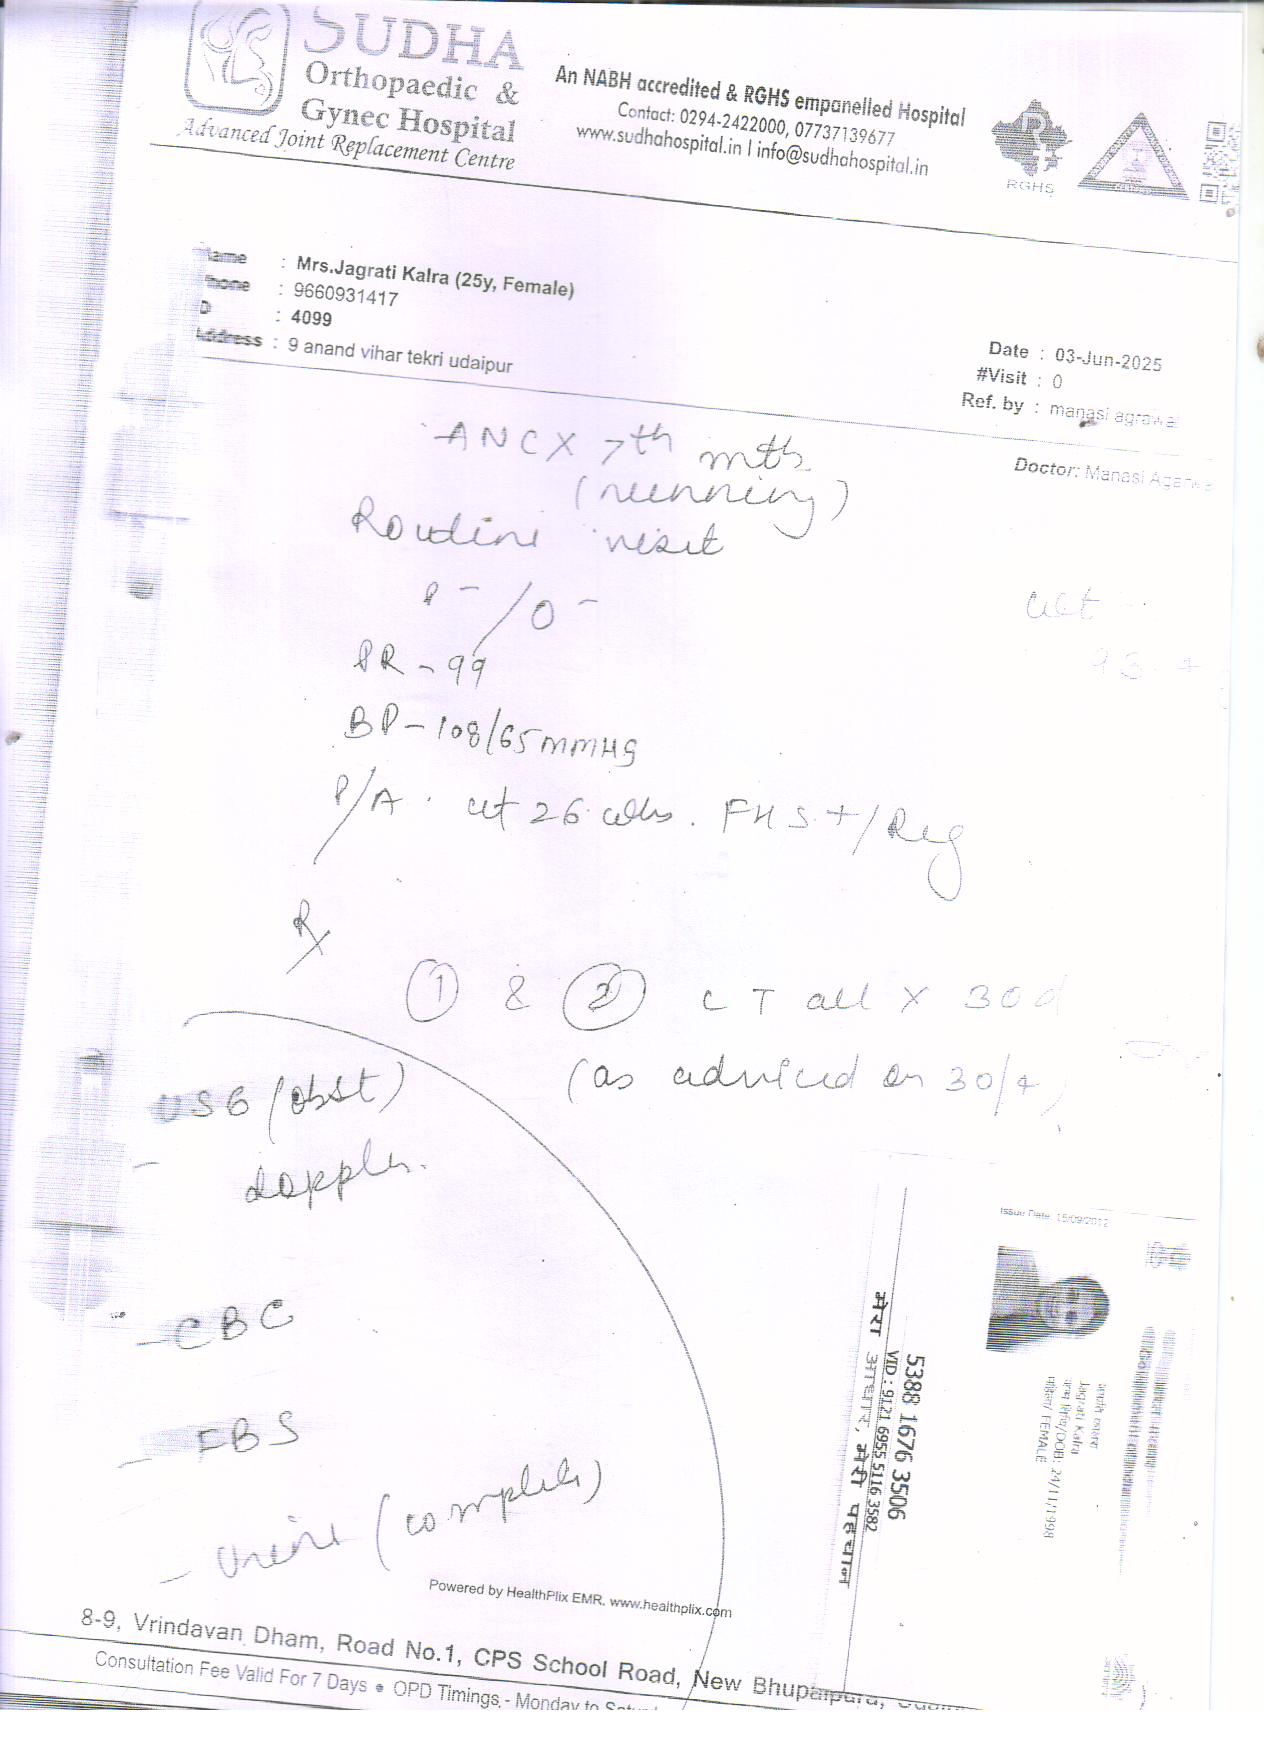 SUDHA
Orthopaedic &
Gynec Hospital
Advanced Joint Replacement Centre
An NABH accredited & RGHS empanelled Hospital
Contact: 0294-2422000, 07737139677
www.sudhahospital.in | info@sudhahospital.in
RGHS
Name : Mrs.Jagrati Kalra (25y, Female)
Phone : 9660931417
ID : 4099
Address : 9 anand vihar tekri udaipur
Date : 03-Jun-2025
#Visit : 0
Ref. by : manasi agrawal
Doctor: Manasi Agarwa
ANC X 7th mth
(running)
Routine visit
P - / O -
PR - 99
BP - 108/65 mmHg
P/A . ut 26 wks. FHS +/Reg
Rx
① & ② CT all X 30d
(as adviced on 30/4)
USG (obst)
doppler.
- CBC
- FBS
- Urine (complete)
Issue Date: 15/09/2012
Jagrati Kalra
/DOB: 24/11/1998
/ FEMALE
5388 1676 3506
VID : 9121 6955 5116 3582
मेरा आधार, मेरी पहचान
Powered by HealthPlix EMR. www.healthplix.com
8-9, Vrindavan Dham, Road No.1, CPS School Road, New Bhupalpura,
Consultation Fee Valid For 7 Days • OPD Timings - Monday to